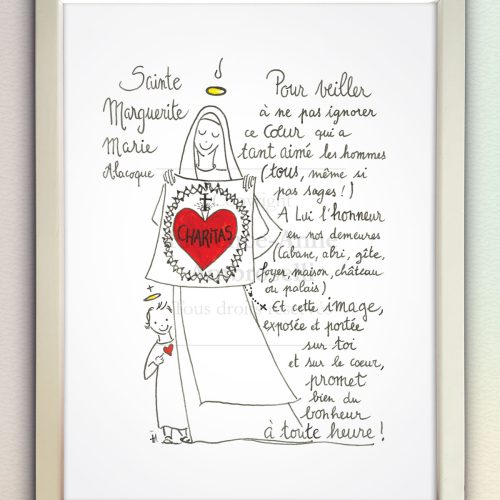 Sainte
Marguerite
Marie
Alacoque
Pour veiller
à ne pas ignorer
ce Cœur qui a
tant aimé les hommes
(tous, même si
pas sages !)
À Lui l'honneur
en nos demeures
(Cabane, abri, gîte,
foyer, maison, château
ou palais)
Et cette image,
exposée et portée
sur toi
et sur le cœur,
promet
bien du
bonheur
à toute heure !
CHARITAS
Tous droits